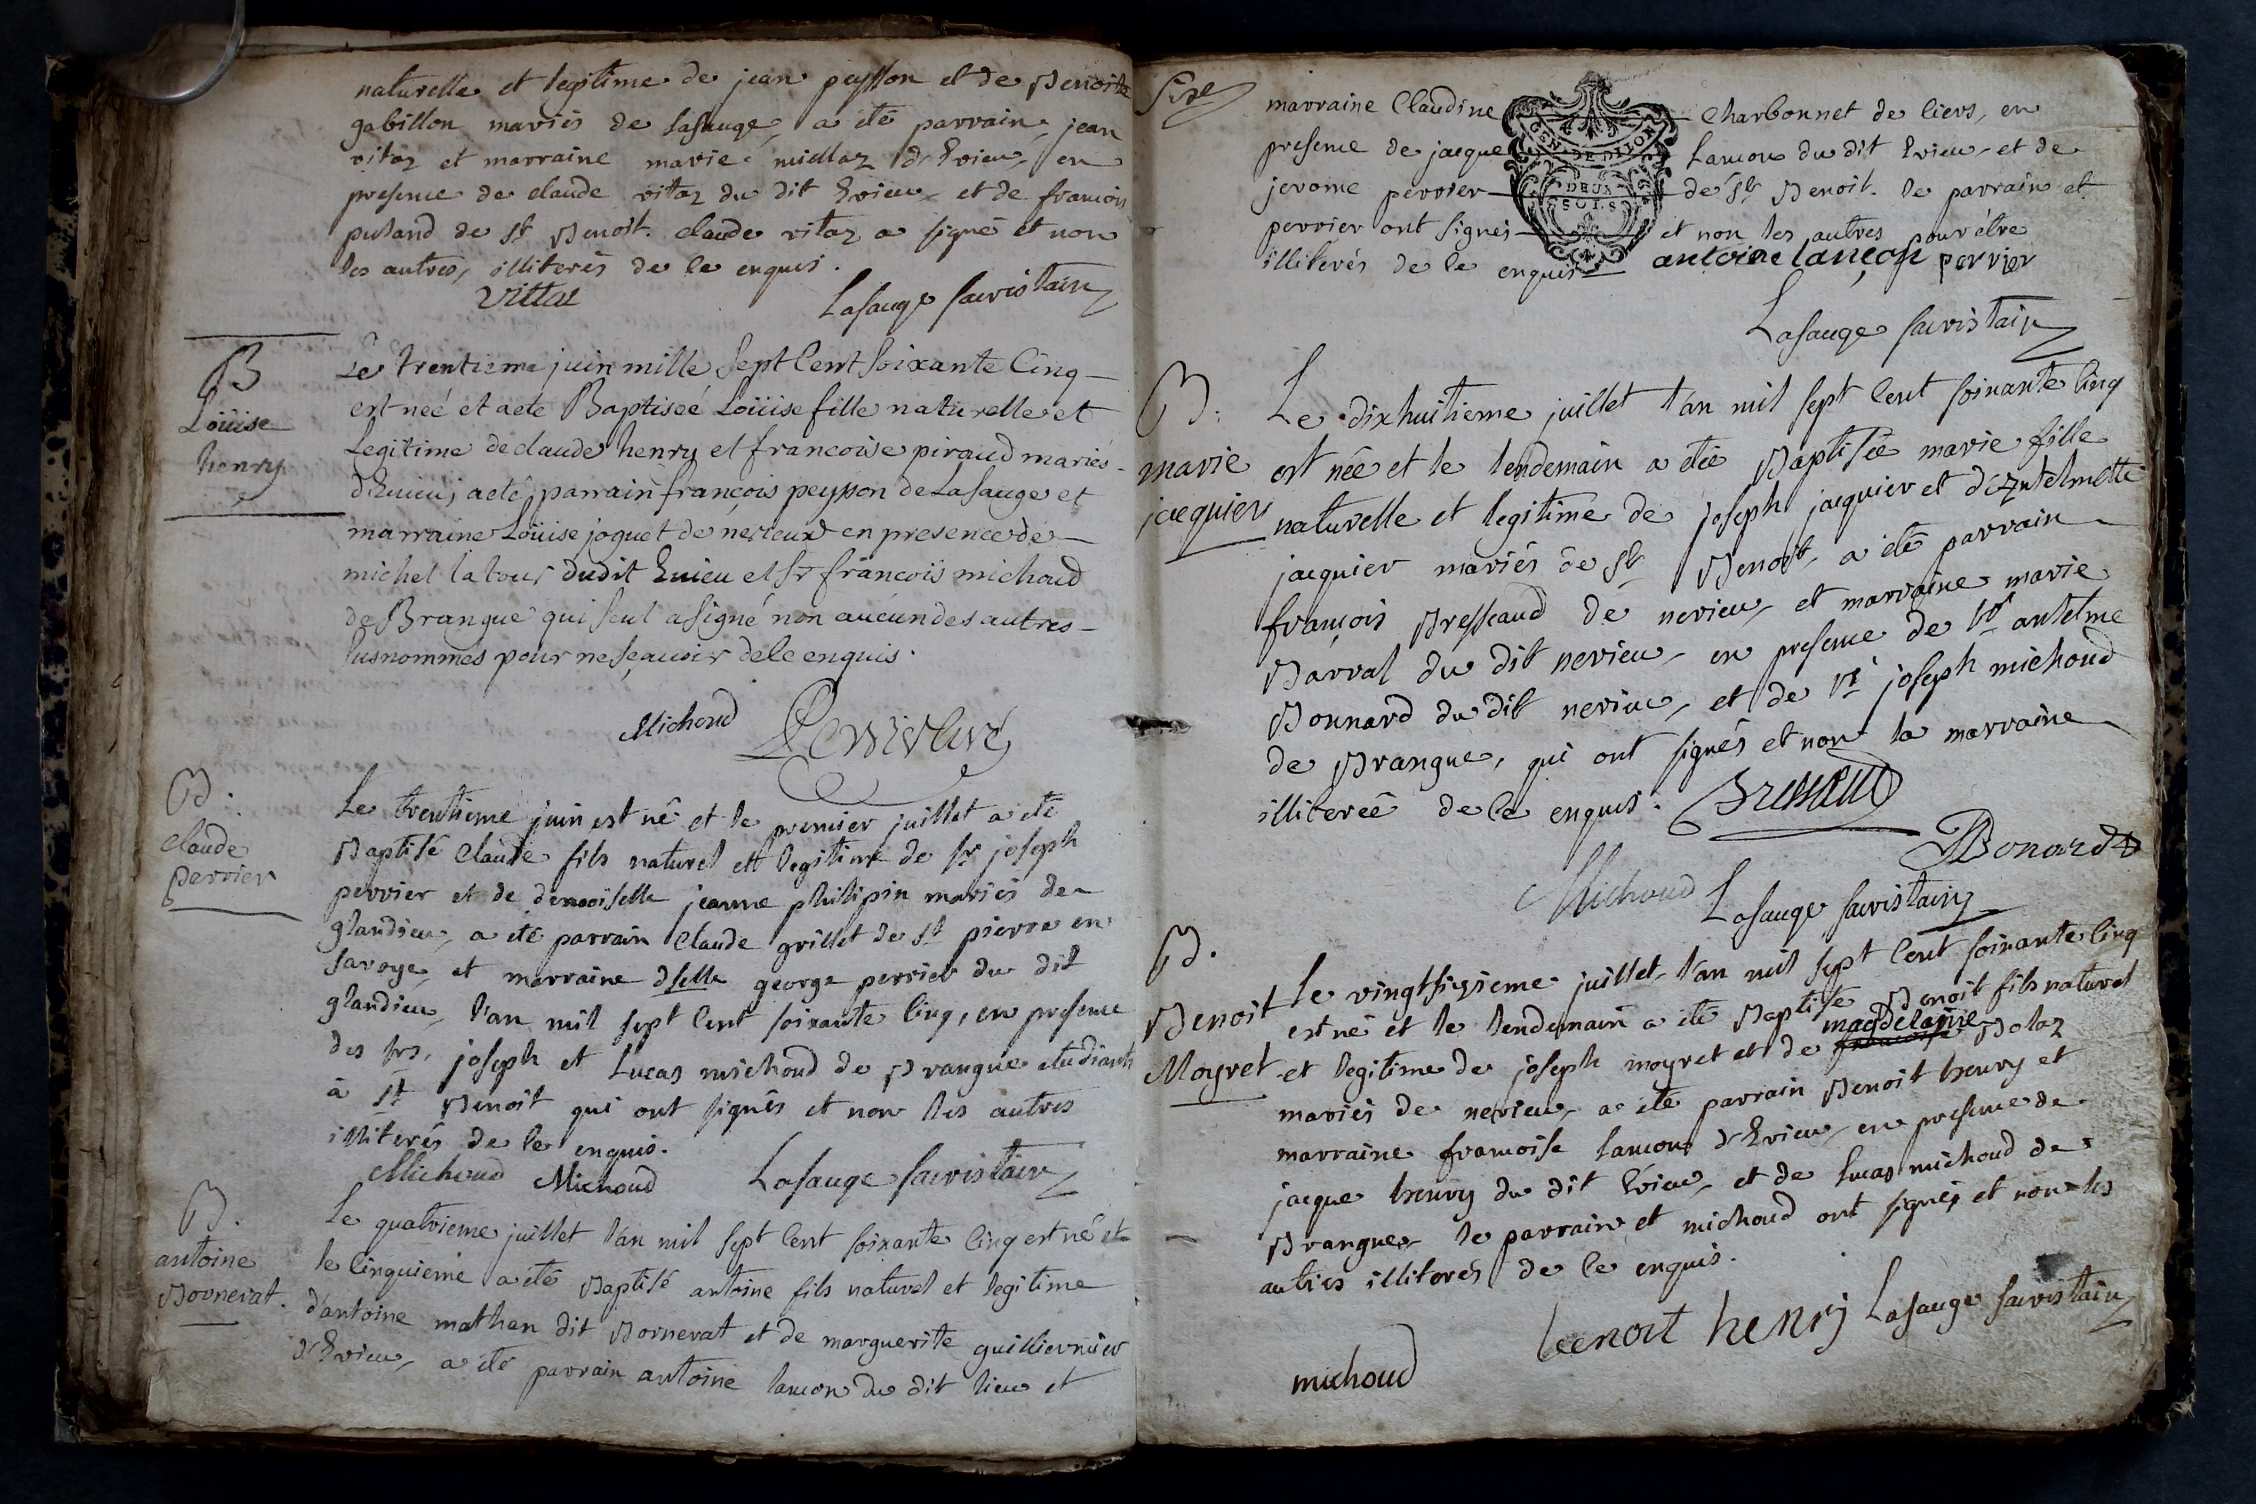 naturelle et legitime de jean peysson et de Benoite
gabillon mariés de Lasauge, a été parrain, jean
vitaz et marraine marie millaz d'Evieu, en
presence de claude vitaz du dit Evieu, et de francois
pusand de St Benoit. claude vitaz a signé et non
les autres, illiterés de ce enquis.
Vittaz
Lasauge sacristain
B
Loüise
henry
Le trentieme juin mille Sept Cent Soixante Cinq
est neé et aete Baptiseé Loüise fille naturelle et
Legitime declaude henry et francoise piraud mariés
dEuieu, aeté parrain françois peysson deLasauge et
marraine Loüise joguet de nerieux en presence de
michel latour dudit Euieu et Sr françois michoud
de Brangue qui seul a signé non aucun des autres
susnommes pour ne sçauoir dele enquis.
Michoud
B.
claude
perrier
Le trentieme juin est né et le premier juillet a été
Baptisé Claude fils naturel et legitime de Sr joseph
perrier et de demoiselle jeanne philipin mariés de
glandieu, a été parrain Claude grillet de St pierre en
savoye, et marraine dselle george perrier du dit
glandieu, l'an mil sept cent soixante cinq, en presence
des srs, joseph et Lucas michoud de Brangue etudiants
à St Benoit qui ont signés et non les autres
illiterés de ce enquis.
Michoud Michoud Lasauge sacristain
B.
antoine
Bornerat.
Le quatrieme juillet l'an mil sept cent soixante cinq est né et
le cinquieme a été Baptisé antoine fils naturel et legitime
d'antoine mathan dit Bornerat et de marguerite guilliermier
d'Evieu, a été parrain antoine lancon du dit lieu et
marraine Claudine Charbonnet de liers, en
GEN. DE DIJON
presence de jacque lancon du dit Evieu, et de
jerome perrier de St Benoit. le parrain et
DEUX
SOLS
perrier ont signés et non les autres pour être
illiterés de ce enquis
antoine lançon perrier
Lasauge sacristain
B.
marie
jacquier
Le dixhuitieme juillet l'an mil sept cent soixante cinq
est née et le lendemain a été Baptisée marie fille
naturelle et legitime de joseph jacquier et d'antelmette
jacquier mariés de St Benoit, a été parrain
françois Bresseaud de nerieu, et marraine marie
Barral du dit nerieu, en presence de Sr antelme
Bonnard du dit nerieu, et de Sr joseph michoud
de Brangue, qui ont signés et non la marraine
illiterée de ce enquis.
Bonard
Michoud Lasauge sacristain
B.
Benoit
Moyret
Le vingtsixieme juillet, l'an mil sept cent soixante cinq
est né et le lendemain a été Baptisé Benoit fils naturel
et legitime de joseph moyret et de magdelaine Bolaz
mariés de nerieu, a été parrain Benoit henry et
marraine francoise lancon d'Evieu, en presence de
jacque henry du dit Evieu, et de lucas michoud de
Brangue, le parrain et michoud ont signés et non les
autres illiterés de ce enquis.
benoit henry Lasauge sacristain
michoud